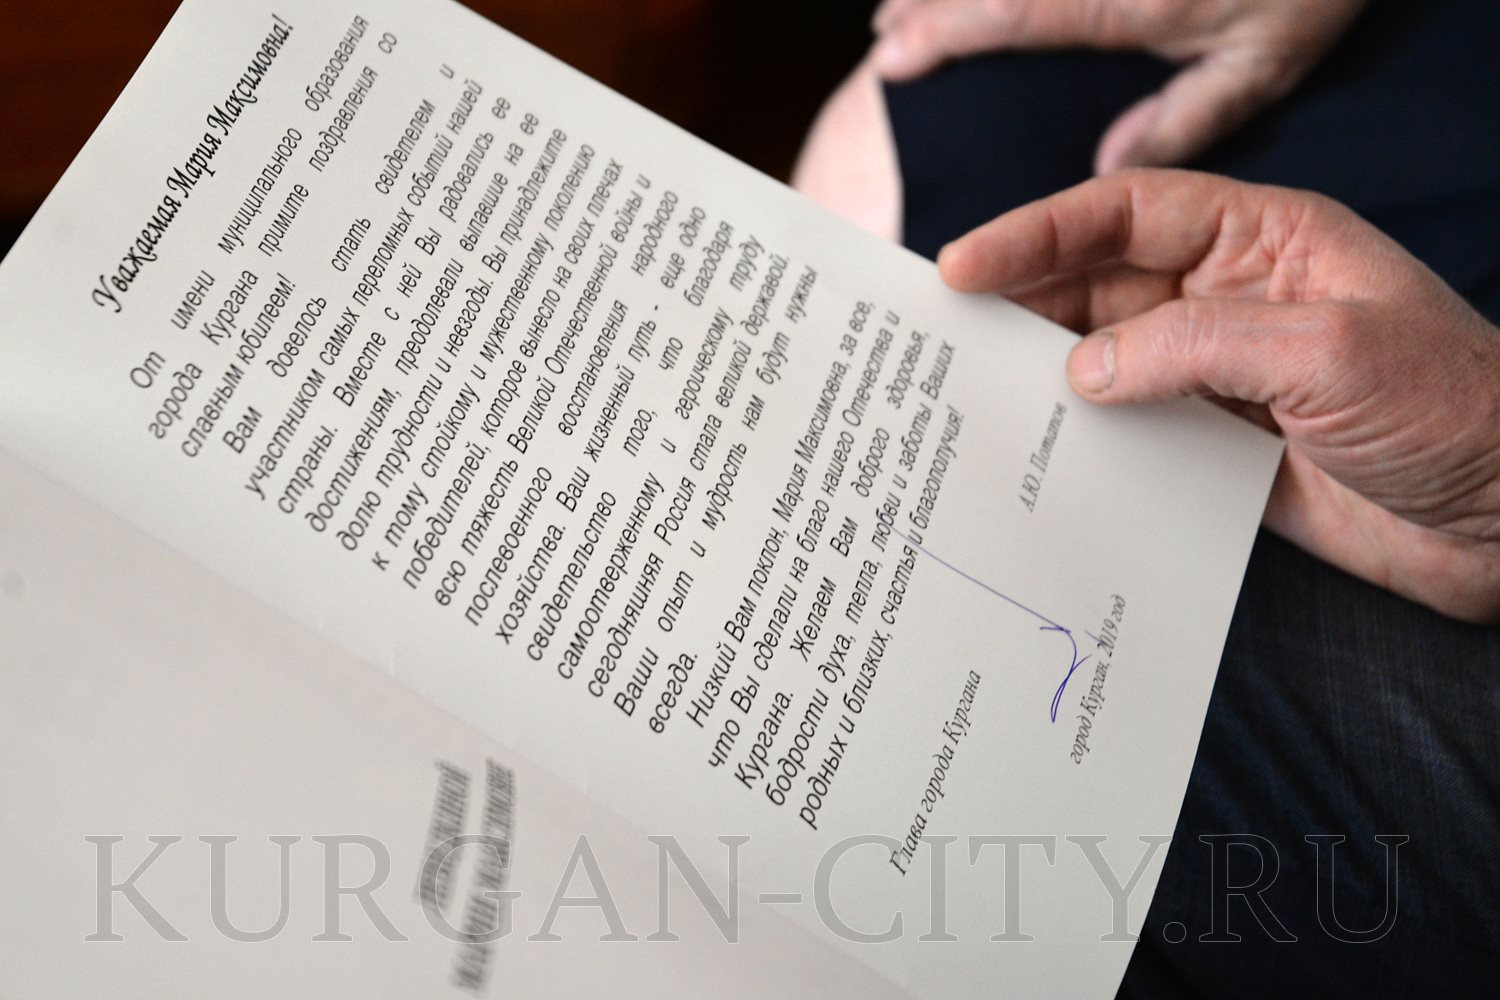 Уважаемая Мария Максимовна!
От имени муниципального образования
города Кургана примите поздравления со
славным юбилеем!
Вам довелось стать свидетелем и
участником самых переломных событий нашей
страны. Вместе с ней Вы радовались ее
достижениям, преодолевали выпавшие на ее
долю трудности и невзгоды. Вы принадлежите
к тому стойкому и мужественному поколению
победителей, которое вынесло на своих плечах
всю тяжесть Великой Отечественной войны и
послевоенного восстановления народного
хозяйства. Ваш жизненный путь - еще одно
свидетельство того, что благодаря
самоотверженному и героическому труду
сегодняшняя Россия стала великой державой.
Ваши опыт и мудрость нам будут нужны
всегда.
Низкий Вам поклон, Мария Максимовна, за все,
что Вы сделали на благо нашего Отечества и
Кургана. Желаем Вам доброго здоровья,
бодрости духа, тепла, любви и заботы Ваших
родных и близких, счастья и благополучия!
Глава города Кургана А.Ю. Потапов
город Курган, 2019 год
МАРИИ МАКСИМОВНЕ
KURGAN-CITY.RU